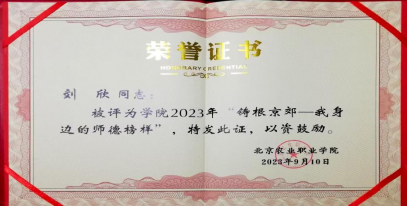 荣誉证书
HONORARY CREDENTIAL
刘 欣 同志：
被评为学院2023年“铸根京郊—我身
边的师德榜样”，特发此证，以资鼓励。
北京农业职业学院
2023年9月10日